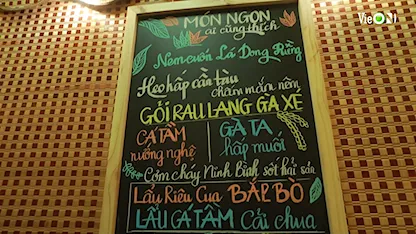 VieON
MÓN NGON
ai cũng thích
Nem cuốn Lá Dong Rừng
Heo hấp cần tàu
chấm mắm nêm
GỎI RAU LANG GÀ XÉ
CÁ TẦM
nướng nghệ
GÀ TA
hấp muối
Cơm cháy Ninh Bình sốt hải sản
Lẩu Riêu Cua BẮP BÒ
LẨU CÁ TẦM Cải chua